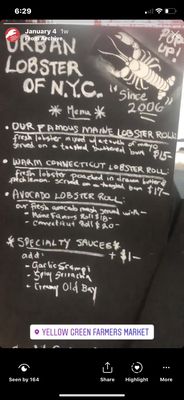 6:29
January 4 1w
From Archive
URBAN
LOBSTER
OF N.Y.C.
POP
UP!
"Since
2006"
* Menu *
• OUR FAMOUS MAINE LOBSTER ROLL:
fresh lobster mixed w/ touch of mayo
served on a toasted buttered bun $15-
• WARM CONNECTICUT LOBSTER ROLL:
fresh lobster poached in drawn butter &
lemon. served on a toasted bun $17-
• AVOCADO LOBSTER ROLL:
our fresh avocado mash served with -
- Maine Famous Roll $18-
- Connecticut Roll $20-
*SPECIALTY SAUCES*
add: + $1-
- Garlic Scampi
- Spicy Sriracha
- Creamy Old Bay
YELLOW GREEN FARMERS MARKET
Seen by 164
Share
Highlight
More